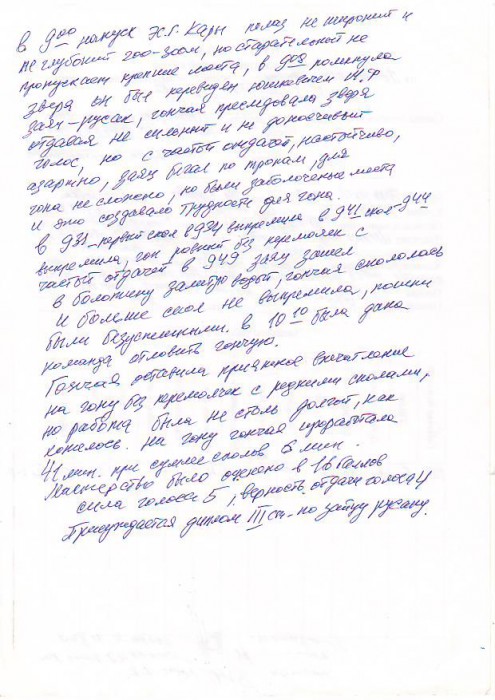 в 9⁰⁰ напуск Ж.Г. Кары полаз не широкий и
не глубокий 200-300м, но старательной не
пропускает крепкие места, в 9⁰³ помкнула
зверя он был перевиден М.Ф
заяц-русак, гончая преследовала зверя
отдавая не сильный и не доносчивый
голос, но с частой отдачей, настойчиво,
азартно, заяц бегал по тропам, для
гона не сложно, но были заболоченые места
и это создавало трудность для гона.
в 9³¹-первый скол в 9³⁴ выпремила в 9⁴¹ скол-9⁴⁴
выпремила, гон ровный без перемолчек с
частой отдачей в 9⁴⁹ заяц зашел
в болотину залитую водой, гончая скололась
и больше скол не выпремила, поиски
были безуспешными. в 10¹⁰ была дана
команда отловить гончую.
Гончая оставила приятное впечатление
на гону без перемолчек с редкими сколами,
но работа была не столь долгой, как
хотелось. на гону гончая проработала
41 мин. при сумме сколов 6 мин.
Мастерство было оценено в 16 баллов
сила голоса 5, верность отдачи голоса 4
Присуждается диплом III ст. по зайцу русаку.